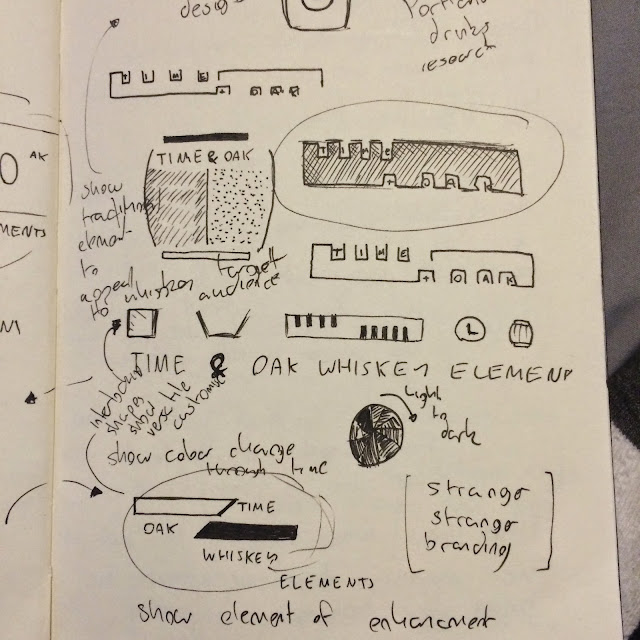 design
drinks
research
T I M E
+ O A K
TIME & OAK
T I M E
+ O A K
O AK
MENTS
show
traditional
element
to
appeal
to whiskey
target
audience
T I M E
+ O A K
L
TIME & OAK WHISKEY ELEMENT
interlocking
shapes
show
versatile
customer
light
to
dark
show colour change
through time
TIME
OAK
WHISKEY
ELEMENTS
stronger
stronger
branding
show element of enhancement